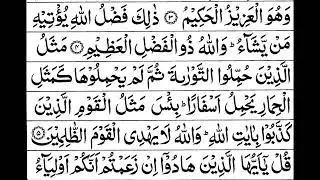 وَهُوَ الْعَزِيْزُ الْحَكِيْمُ ۝۳ ذٰلِكَ فَضْلُ اللّٰهِ يُؤْتِيْهِ
مَنْ يَّشَآءُ ؕ وَاللّٰهُ ذُو الْفَضْلِ الْعَظِيْمِ ۝۴ مَثَلُ
الَّذِيْنَ حُمِّلُوا التَّوْرٰىةَ ثُمَّ لَمْ يَحْمِلُوْهَا كَمَثَلِ
الْحِمَارِ يَحْمِلُ اَسْفَارًا ؕ بِئْسَ مَثَلُ الْقَوْمِ الَّذِيْنَ
كَذَّبُوْا بِاٰيٰتِ اللّٰهِ ؕ وَاللّٰهُ لَا يَهْدِى الْقَوْمَ الظّٰلِمِيْنَ ۝۵
قُلْ يٰۤاَيُّهَا الَّذِيْنَ هَادُوْۤا اِنْ زَعَمْتُمْ اَنَّكُمْ اَوْلِيَآءُ